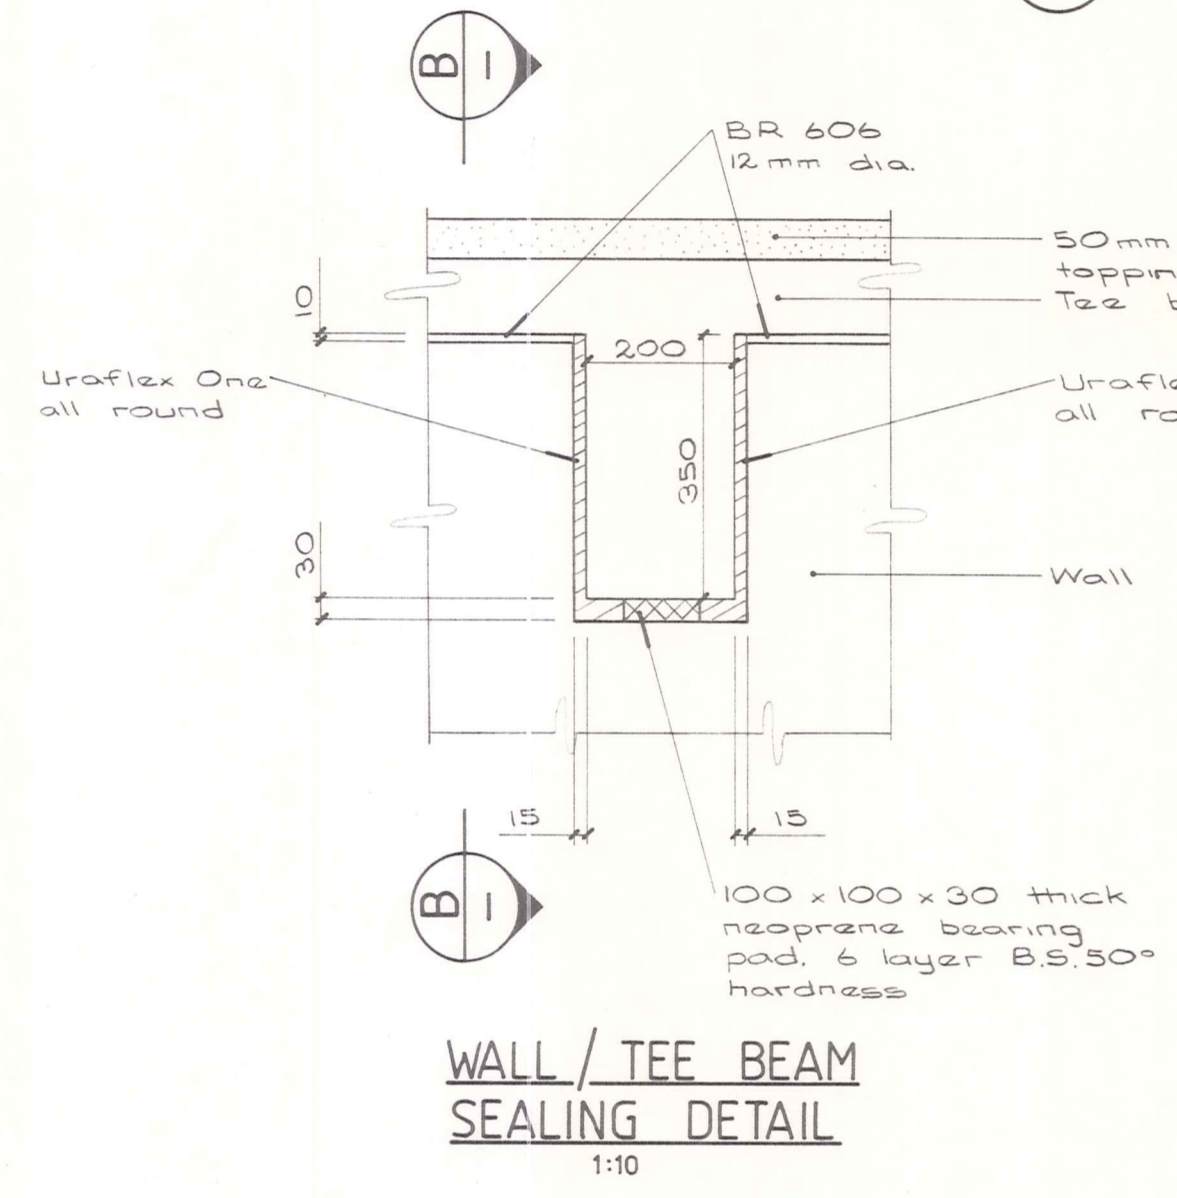 B
1
BR 606
12 mm dia.
50mm
Tee
10
200
Uraflex One
all round
all
350
30
Wall
15
15
B
1
100 x 100 x 30 thick
neoprene bearing
pad. 6 layer B.S. 50°
hardness
WALL / TEE BEAM
SEALING DETAIL
1:10